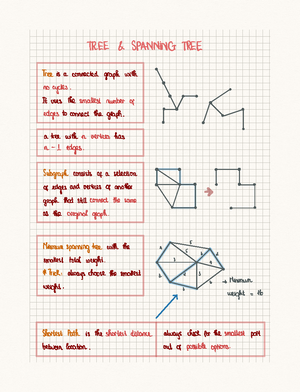 TREE & SPANNING TREE
Tree is a connected graph with
no cycles.
It uses the smallest number of
edges to connect the graph.
a tree with n vertices has
n - 1 edges.
Subgraph consists of a selection
of edges and vertices of another
graph that still connect the same
as the original graph.
Minimum spanning tree with the
smallest total weight.
* Trick: always choose the smallest
weight.
→ Minimum
weight = 16
Shortest Path is the shortest distance
between location.
always check for the smallest path
out of possible options.